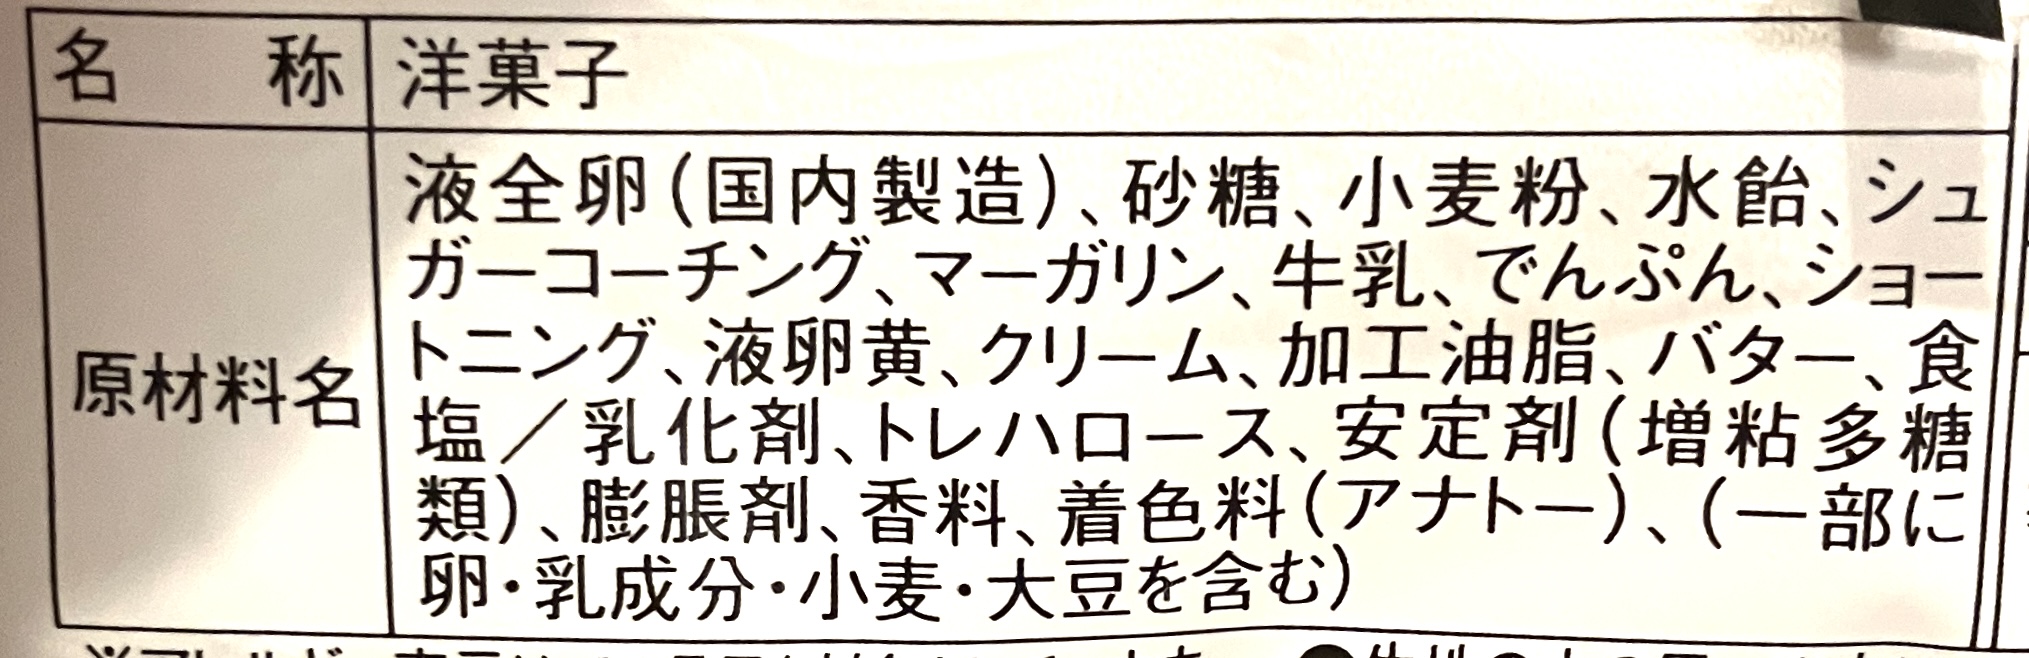 名称 洋菓子
原材料名
液全卵(国内製造)、砂糖、小麦粉、水飴、シュ
ガーコーチング、マーガリン、牛乳、でんぷん、ショー
トニング、液卵黄、クリーム、加工油脂、バター、食
塩/乳化剤、トレハロース、安定剤(増粘多糖
類)、膨脹剤、香料、着色料(アナトー)、(一部に
卵・乳成分・小麦・大豆を含む)